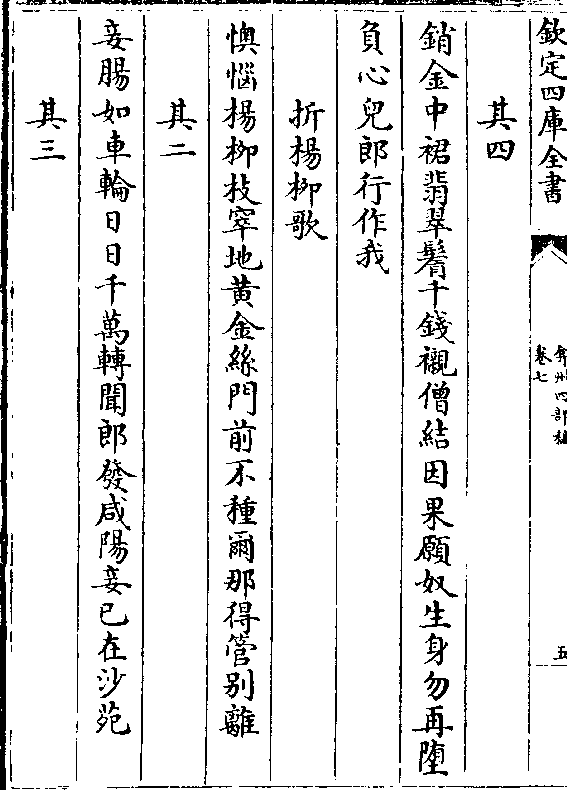 欽定四庫全書
弇州四部稿
卷七
五
其四
銷金中裙翡翠鬌千錢襯僧結因果願奴生身勿再墮
負心兒郎行作我
折楊柳歌
懊惱楊柳枝窣地黃金絲門前不種爾那得管别離
其二
妾腸如車輪日日千萬轉聞郎發咸陽妾已在沙苑
其三